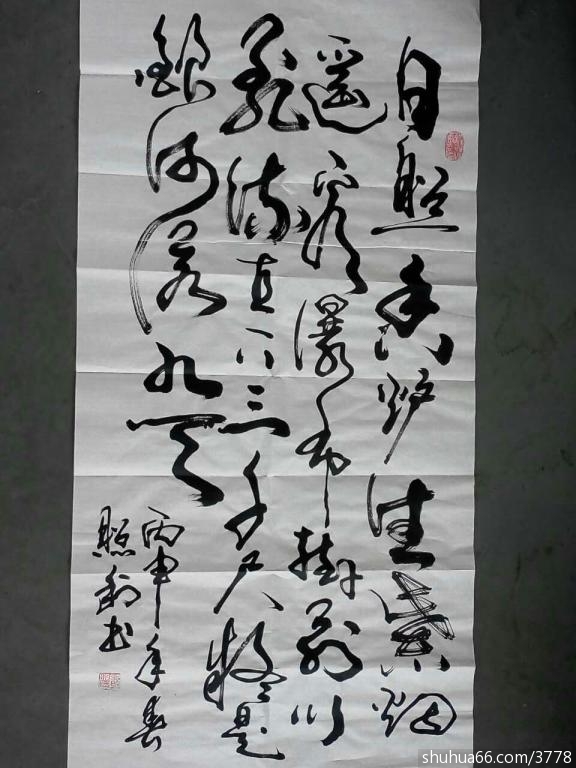 日照香炉生紫烟
遥看瀑布掛前川
飛流直下三千尺疑是
銀河落九天
丙申年春
照书
shuhua66.com/3778